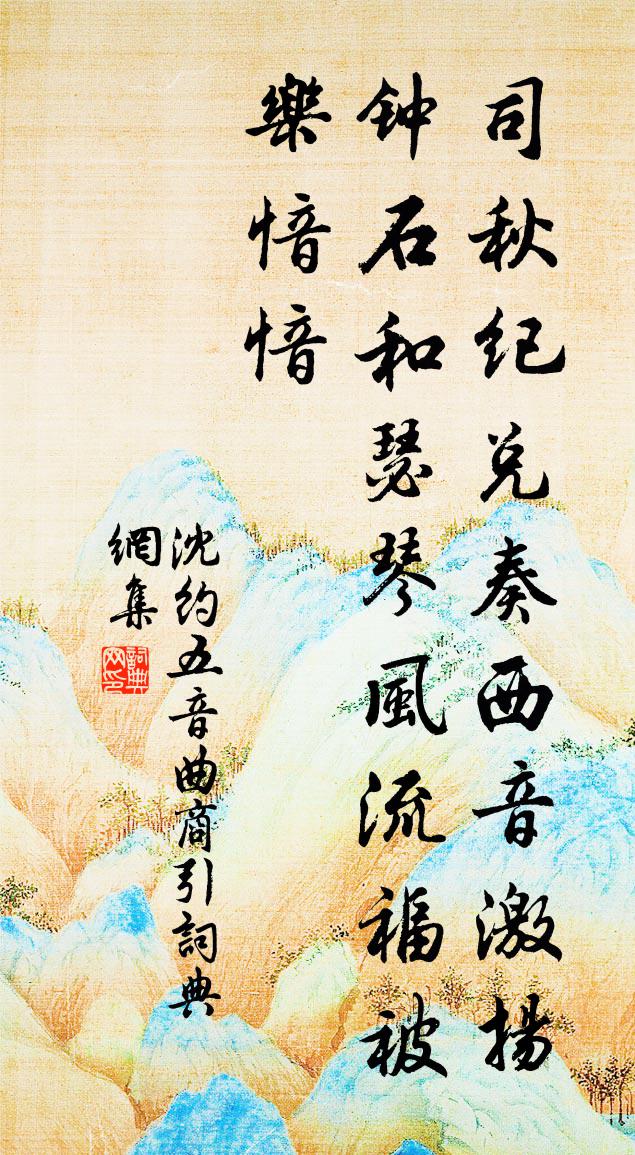 司秋纪兑奏西音激揚
钟石和瑟琴風流福被
樂愔愔
沈约五音曲商引詞典
網集
詞典網印